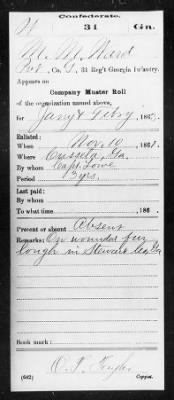 Confederate.
31 Ga.
Ward
Pvt., Co. I, 31 Reg't Georgia Infantry.
Appears on
Company Muster Roll
of the organization named above,
for Jany & Feby, 186
Enlisted:
When Nov. 10, 186
Where Cusseta, Ga.
By whom Capt. Lowe
Period 3 yrs.
Last paid:
By whom
To what time , 186
Present or absent Absent
Remarks: On wounded fur
lough in Stewart Co. Ga
Book mark:
(642) Copyist.